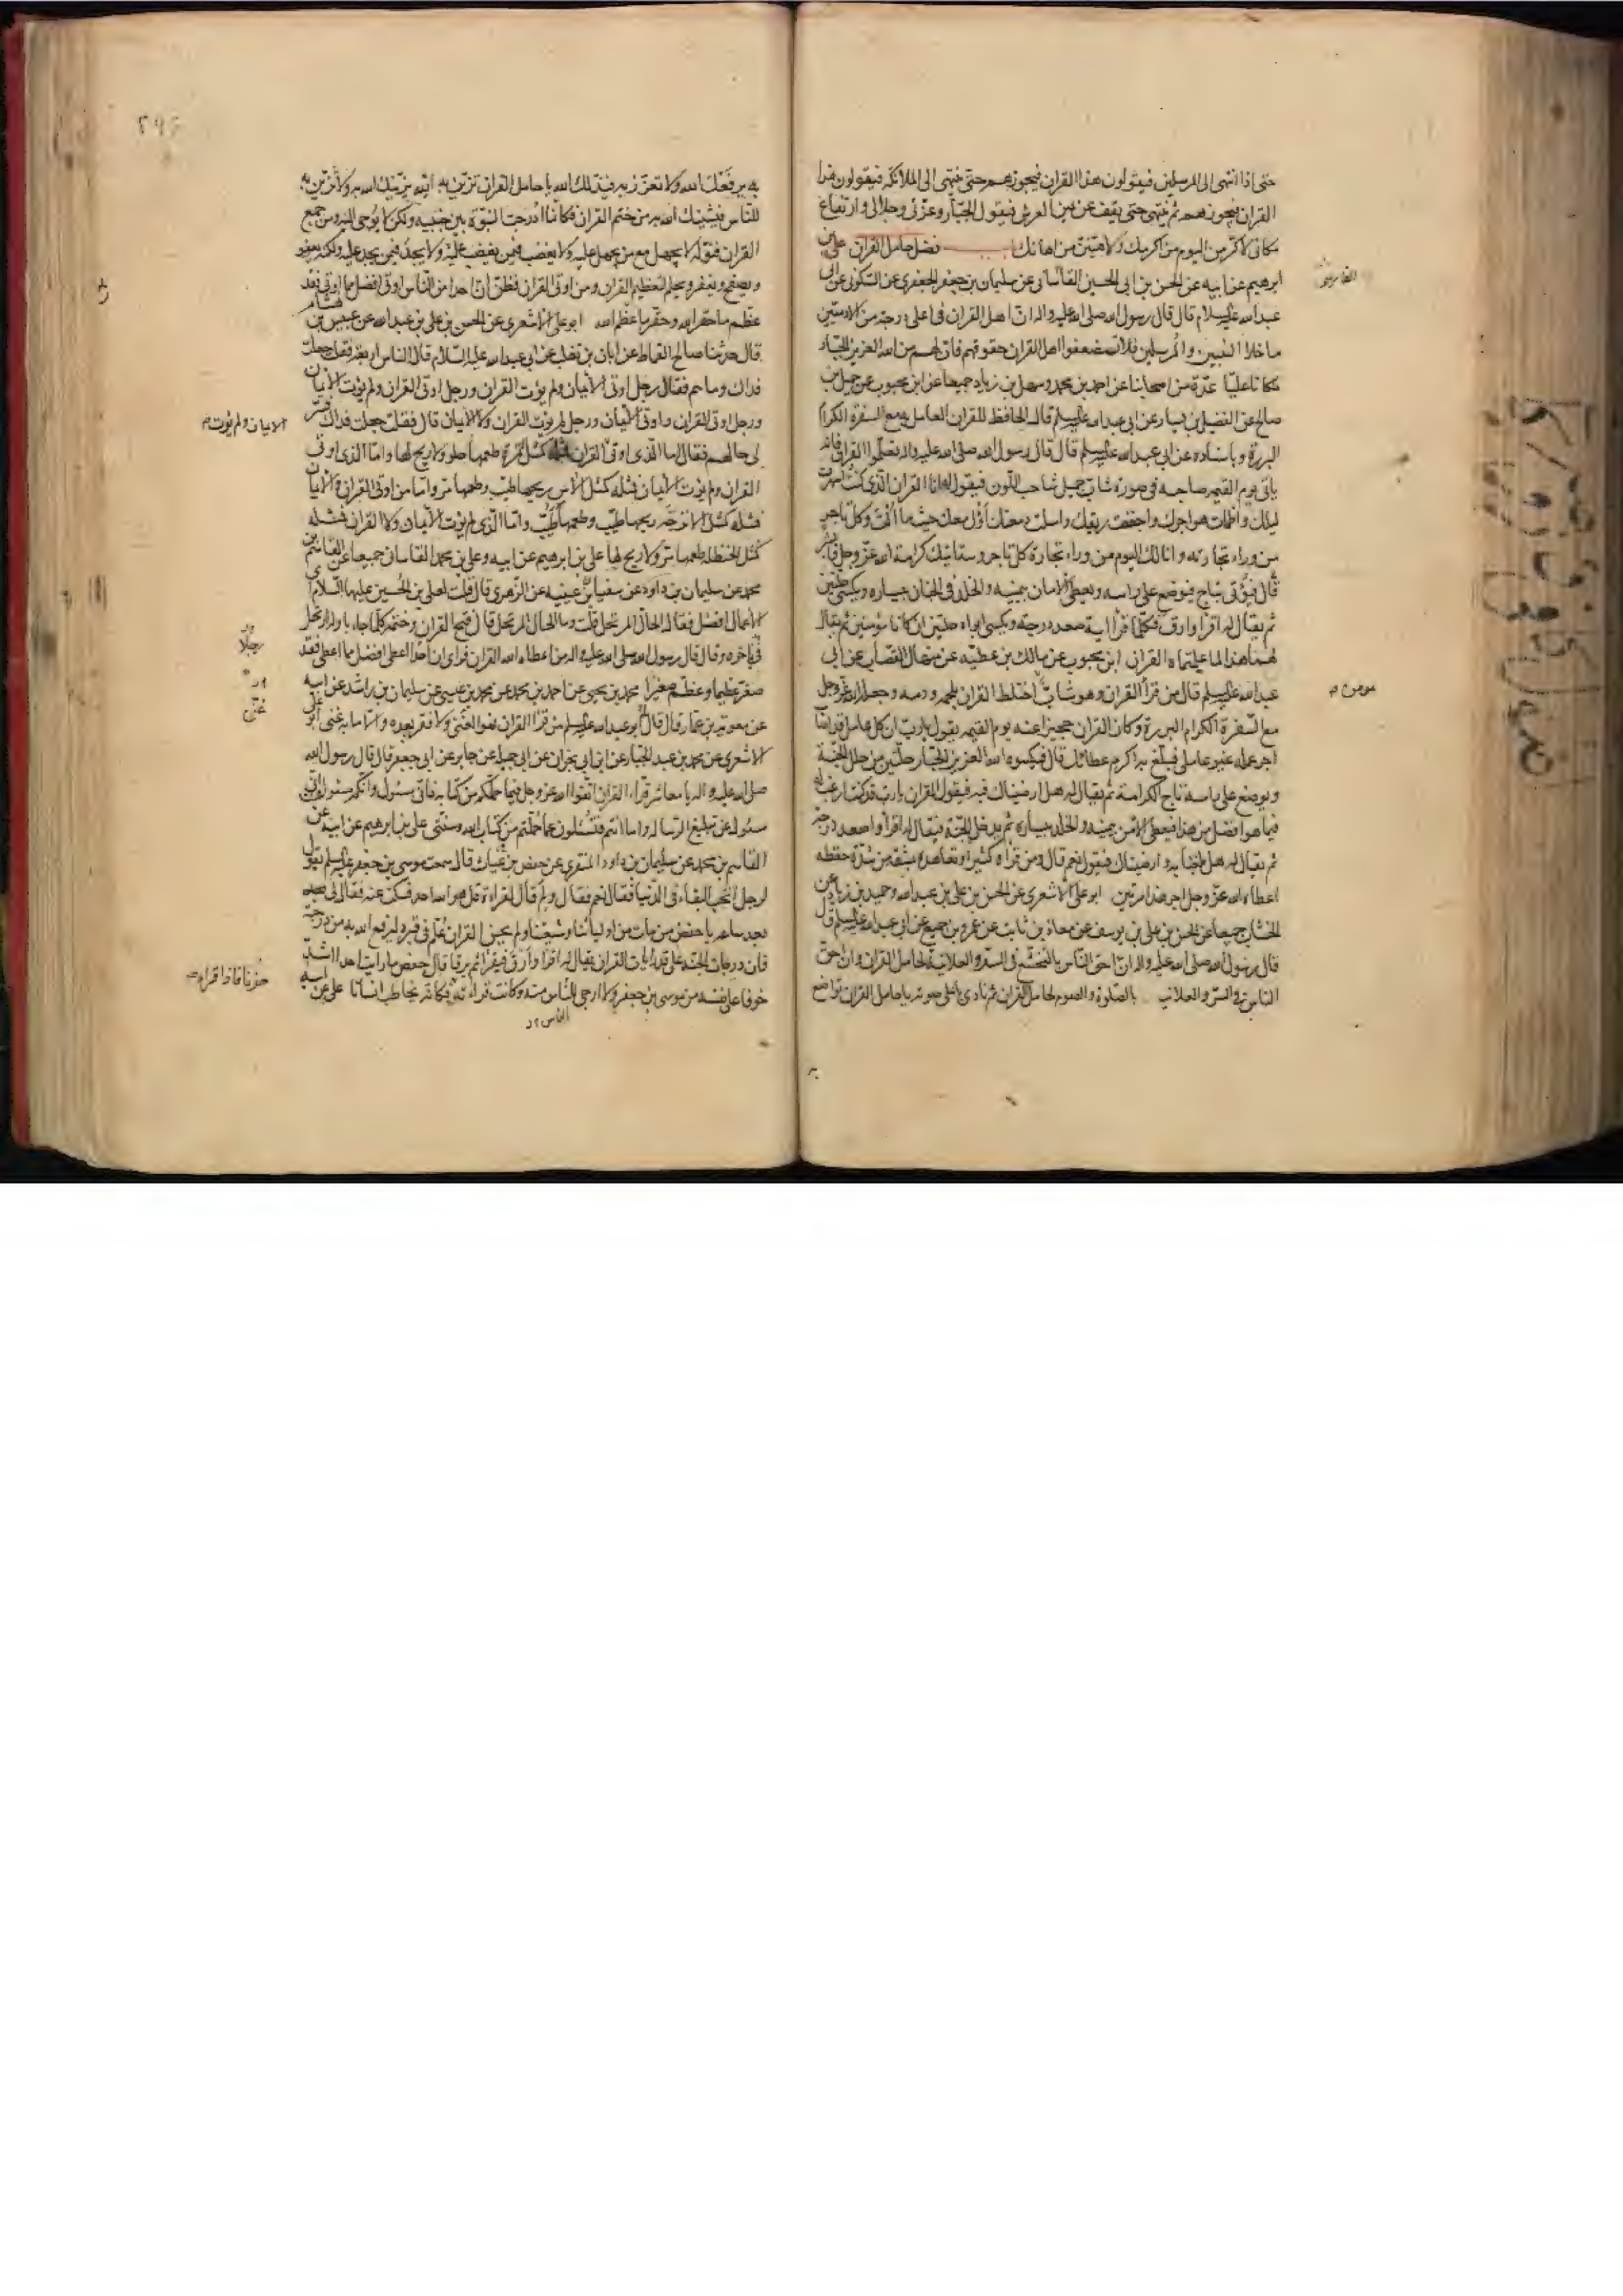 حتى اذا انتهى الى المرسلين فيقولون هذا القران فيجوزهم حتى ينتهى الى الملائكة فيقولون هذا
القران فيجوزهم ثم ينتهى حتى يقف عن يمين العرش فيقول الجبار وعزتى وجلالى وارتفاع
مكانى لاكرمن اليوم من اكرمك ولاهينن من اهانك فضل حامل القران على بن
ابرهيم عن ابيه عن الحسن بن ابى الحسين الفاسانى عن سليمان بن جعفر الجعفرى عن السكونى عن ابى
عبد الله عليه السلام قال قال رسول الله صلى الله عليه واله ان اهل القران فى اعلى درجة من الادميين
ما خلا النبيين والمرسلين فلا تستضعفوا اهل القران حقوقهم فان لهم من الله العزيز الجبار
مكانا عليا عدة من اصحابنا عن احمد بن محمد وسهل بن زياد جميعا عن ابن محبوب عن جميل بن
صالح عن الفضيل بن يسار عن ابى عبد الله عليه السلم قال الحافظ للقران العامل به مع السفرة الكرام
البررة وباسناده عن ابى عبد الله عليه السلم قال قال رسول الله صلى الله عليه واله تعلموا القران فانه
ياتى يوم القيمه صاحبه فى صورة شاب جميل شاحب اللون فيقول له انا القران الذى كنت اسهرت
ليلك واظمات هواجرك واجففت ريقك واسلت دمعتك اؤل معك حيث ما الت وكل تاجر
من وراء تجارته وانا لك اليوم من وراء تجارة كل تاجر وستاتيك كرامة الله عز وجل فابشر
قال فيؤتى بتاج فيوضع على راسه ويعطى الامان بيمينه والخلد فى الجنان بيساره ويكسى حلتين
ثم يقال له اقرا وارق فكلما قرا اية صعد درجة ويكسى ابواه حلتين ان كانا مؤمنين ثم يقال
لهما هذا لما علمتماه القران ابن محبوب عن مالك بن عطيه عن منهال القصاب عن ابى
عبد الله عليه السلم قال من قرأ القران وهو شاب اختلط القران بلحمه ودمه وجعله الله عز وجل
مع السفرة الكرام البررة وكان القران حجيزا عنه يوم القيمه يقول يا رب ان كل عامل قد اصاب
اجر عمله غير عاملى فبلغ به اكرم عطائك قال فيكسوه الله العزيز الجبار حلتين من حلل الجنة
ويوضع على راسه تاج الكرامة ثم يقال له هل ارضيناك فيه فيقول القران يا رب قد كنت ارغب له
فيما هو افضل من هذا فيعطى الامن بيمينه والخلد بيساره ثم يدخل الجنة فيقال له اقرا واصعد درجة
ثم يقال له هل بلغنا به وارضيناك فيقول نعم قال ومن قراه كثيرا وتعاهده بمشقة من شدة حفظه
اعطاه الله عز وجل اجر هذا مرتين ابو على الاشعرى عن الحسن بن على بن عبد الله وحميد بن زياد عن
الخشاب جميعا عن الحسن بن على بن يوسف عن معاذ بن ثابت عن عمرو بن جميع عن ابى عبد الله عليه السلم قال
قال رسول الله صلى الله عليه واله ان احق الناس بالتخشع فى السر والعلانية لحامل القران وان احق
الناس فى السر والعلانيه بالصلوة والصوم لحامل القران ثم نادى باعلى صوته يا حامل القران تواضع
مؤمن م
به يرفعك الله ولا تعزز به فيذلك الله يا حامل القران تزين به لله يزينك الله به ولا تزين به
للناس فيشينك الله به من ختم القران فكانما ادرجت النبوة بين جنبيه ولكن لا يوحى اليه ومن جمع
القران فنوله لا يجهل مع من يجهل عليه ولا يغضب فيمن يغضب عليه ولا يجد فيمن يجد عليه ولكنه يعفو
ويصفح ويغفر ويحلم لتعظيم القران ومن اوتى القران فظن ان احدا من الناس اوتى افضل مما اوتى فقد
عظم ما حقر الله وحقر ما عظم الله ابو على الاشعرى عن الحسن بن على بن عبد الله عن عبيس بن هشام
قال حدثنا صالح القماط عن ابان بن تغلب عن ابى عبد الله عليه السلام قال الناس اربعة فقلت جعلت
فداك وما هم فقال رجل اوتى الايمان ولم يؤت القران ورجل اوتى القران ولم يؤت الايمان
ورجل اوتى القران واوتى الايمان ورجل لم يؤت القران ولا الايمان قال فقلت جعلت فداك فسر
لى حالهم فقال اما الذى اوتى القران فمثله كمثل تمرة طعمها حلو ولا ريح لها واما الذى اوتى
القران ولم يؤت الايمان فمثله كمثل الاس ريحها طيب وطعمها مر واما من اوتى القران والايمان
فمثله كمثل الاترجة ريحها طيب وطعمها طيب واما الذى لم يؤت الايمان ولا القران فمثله
كمثل الحنظلة طعمها مر ولا ريح لها على بن ابرهيم عن ابيه وعلى بن محمد القاسانى جميعا عن القاسم بن
محمد عن سليمان بن داود عن سفيان بن عيينه عن الزهرى قال قلت لعلى بن الحسين عليهما السلام اى
الاعمال افضل فقال الحال المرتحل قلت وما الحال المرتحل قال فتح القران وختمه كلما جاء باوله ارتحل
فى اخره وقال قال رسول الله صلى الله عليه واله من اعطاه الله القران فراى ان احدا اعطى افضل مما اعطى فقد
صغر عظيما وعظم صغيرا محمد بن يحيى عن احمد بن محمد عن محمد بن عيسى عن سليمان بن راشد عن ابيه
عن معوية بن عمار قال قال لى ابو عبد الله عليه السلم من قرأ القران فهو الغنى ولا فقر بعده والا ما به غنى ابو على
الاشعرى عن محمد بن عبد الجبار عن ابن ابى نجران عن ابى جميلة عن جابر عن ابى جعفر قال قال رسول الله
صلى الله عليه واله يا معاشر قراء القران اتقوا الله عز وجل فيما حملكم من كتابه فانى مسئول وانكم مسئولون انى
مسئول عن تبليغ الرسالة واما انتم فتسئلون عما حملتم من كتاب الله وسنتى على بن ابرهيم عن ابيه عن
القاسم بن محمد عن سليمان بن داود المنقرى عن حفص بن غياث قال سمعت موسى بن جعفر عليه السلم يقول
لرجل اتحب البقاء فى الدنيا فقال نعم فقال ولم قال لقراءة قل هو الله احد فسكت عنه فقال لى بعد
ساعه يا حفص من مات من اوليائنا وشيعتنا ولم يحسن القران علم فى قبره ليرفع الله به من درجته
فان درجات الجنة على قدر ايات القران يقال له اقرا وارق فيقرا ثم يرقا قال حفص ما رايت احدا اشد
خوفا على نفسه من موسى بن جعفر ولا ارجى للناس منه وكانت قراءته فكانه يخاطب انسانا على عن ابيه
الايمان ولم يؤت م
رجلا
حزنا فاذا قراء